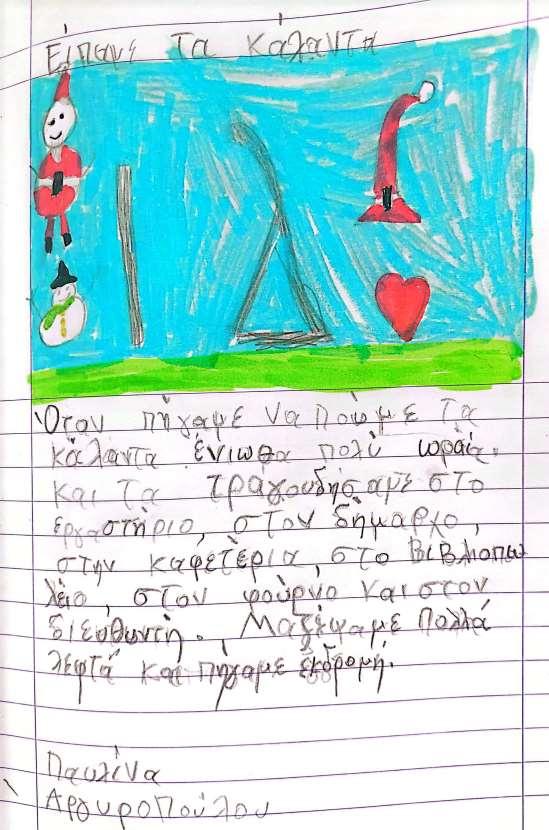 Είπαμε τα κάλαντα
Ι Δ
Όταν πήγαμε να πούμε τα
κάλαντα ένιωθα πολύ ωραία.
Και τα τραγουδήσαμε στο
εργαστήριο, στον δήμαρχο,
στην καφετέρια, στο βιβλιοπω
λείο, στον φούρνο και στον
διευθυντή. Μαζέψαμε πολλά
λεφτά και πήγαμε εκδρομή.
Παυλίνα
Αργυροπούλου